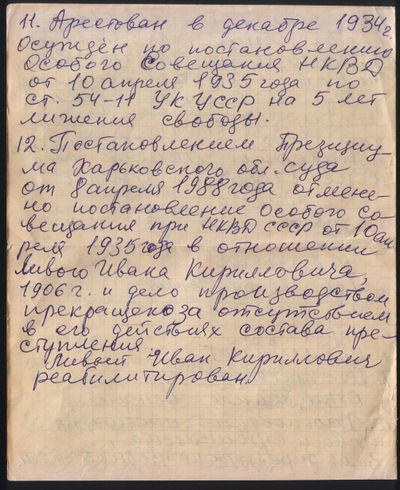 11. Арестован в декабре 1934 г.
Осуждён по постановлению
Особого Совещания НКВД
от 10 апреля 1935 года по
ст. 54-11 УК УССР на 5 лет
лишения свободы.
12. Постановлением Президиу-
ма Харьковского обл. суда
от 8 апреля 1988 года отмене-
но постановление Особого со-
вещания при НКВД СССР от 10 ап
реля 1935 года в отношении
Ливого Ивана Кирилловича,
1906 г. и дело производством
прекращено за отсутствием
в его действиях состава пре-
ступления.
Ливой Иван Кириллович
реабилитирован